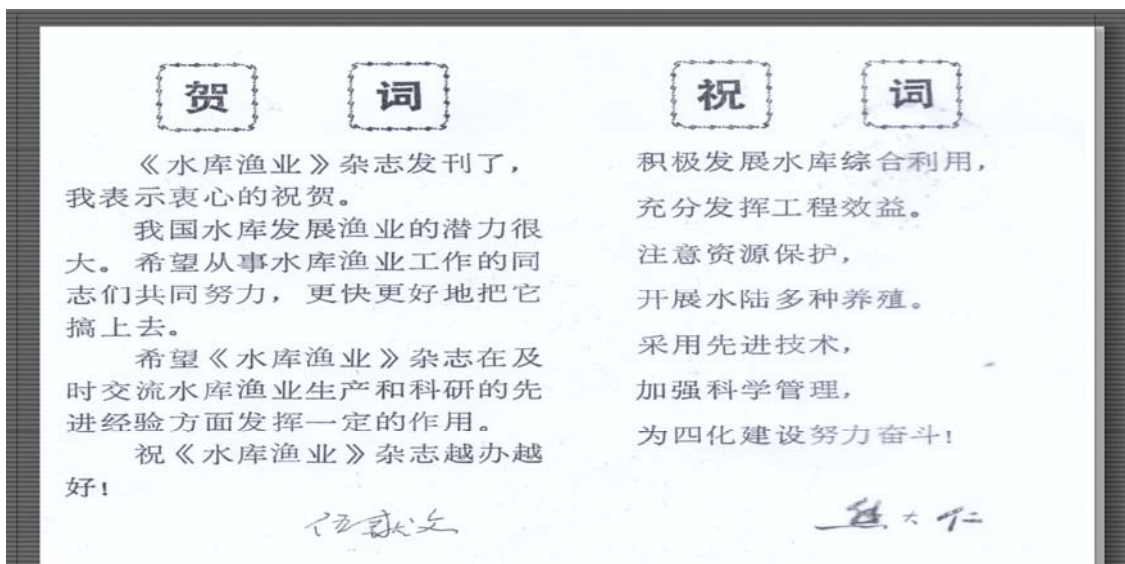 贺 词
《水库渔业》杂志发刊了，
我表示衷心的祝贺。
我国水库发展渔业的潜力很
大。希望从事水库渔业工作的同
志们共同努力，更快更好地把它
搞上去。
希望《水库渔业》杂志在及
时交流水库渔业生产和科研的先
进经验方面发挥一定的作用。
祝《水库渔业》杂志越办越
好!
伍献文
祝 词
积极发展水库综合利用，
充分发挥工程效益。
注意资源保护，
开展水陆多种养殖。
采用先进技术，
加强科学管理，
为四化建设努力奋斗!
熊大仁